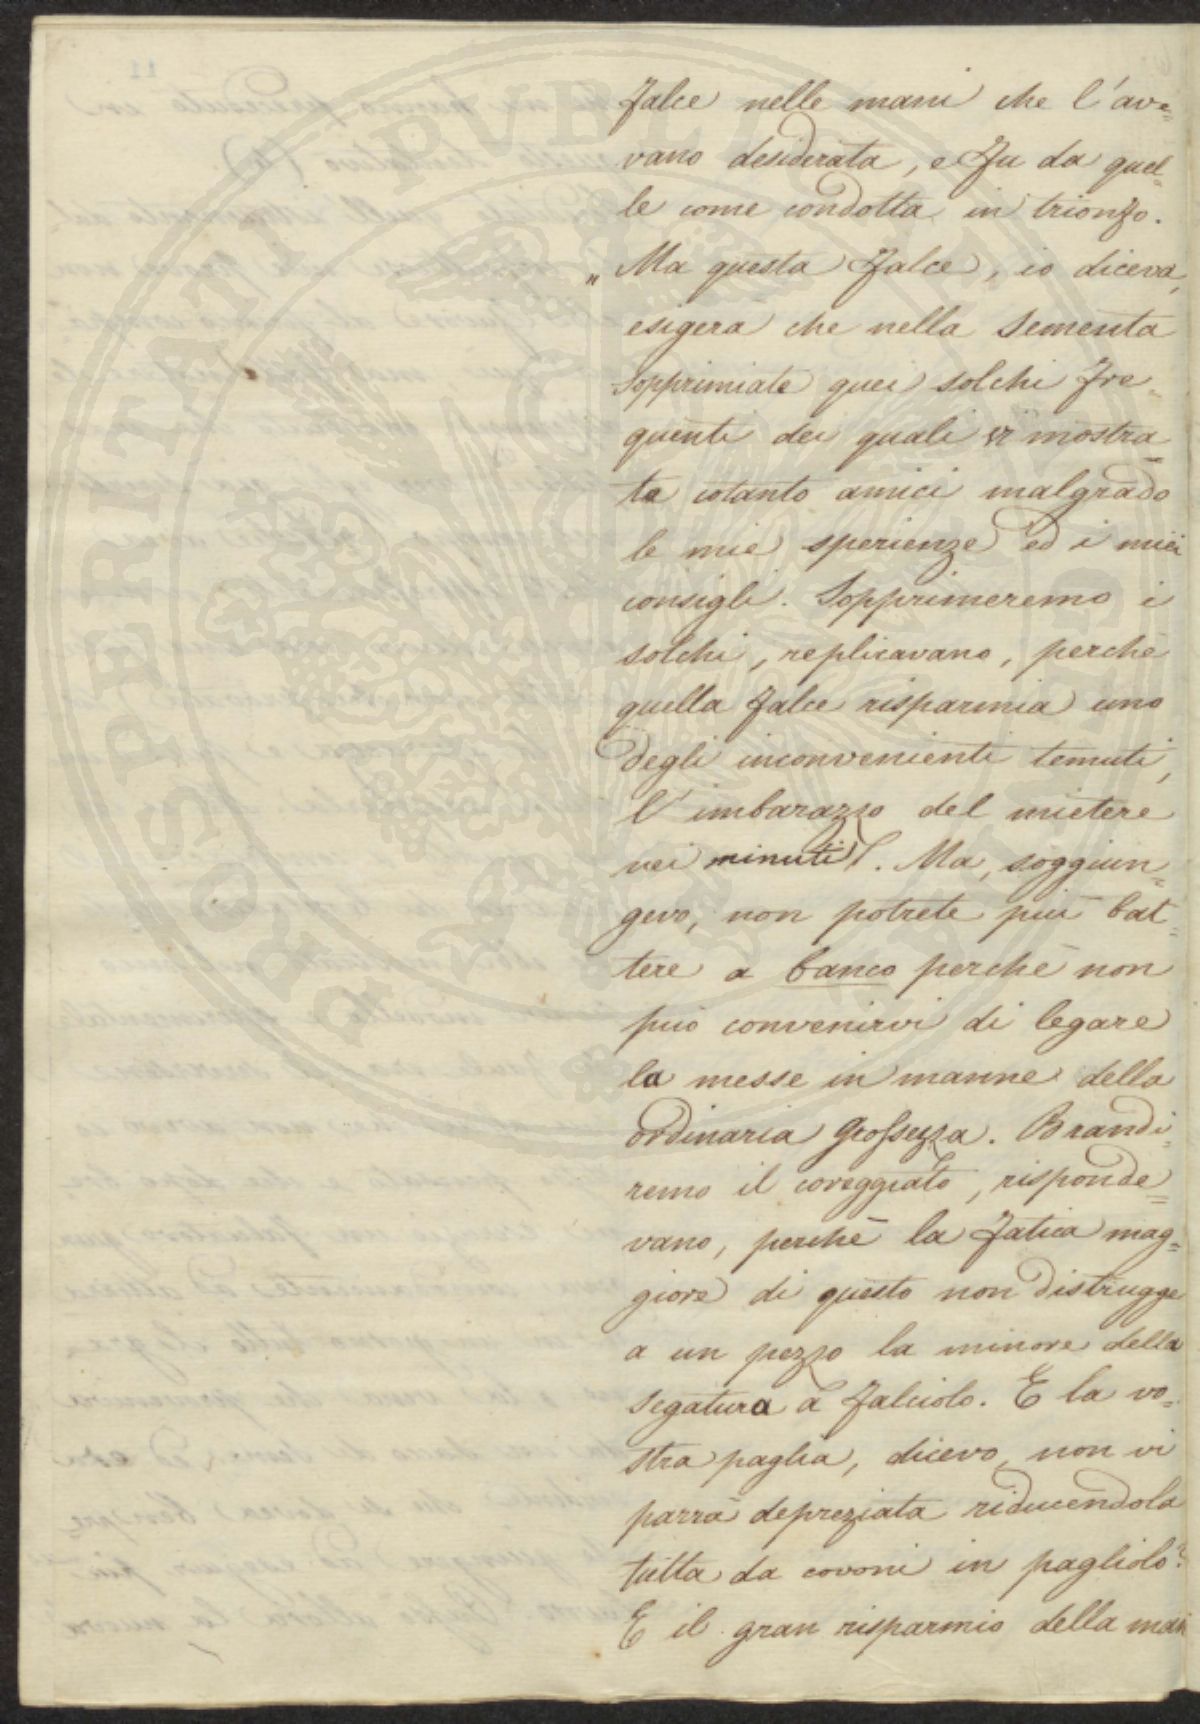 falce nelle mani che l'ave=
vano desiderata, e fu da quel=
le come condotta in trionfo.
„ Ma questa falce, io diceva,
esigerà che nella Sementa
sopprimiate quei solchi fre=
quenti dei quali vi mostra=
te cotanto amici malgrado
le mie sperienze ed i miei
consigli. Sopprimeremo i
solchi, replicavano, perchè
quella falce risparmia uno
degli inconvenienti temuti,
l'imbarazzo del mietere
nei minuti. Ma, soggiun=
gevo, non potrete più bat=
tere a banco perchè non
può convenirvi di legare
la messe in manne della
ordinaria grossezza. Brandi=
remo il coreggiato, risponde=
vano, perchè la fatica mag=
giore di questo non distrugge
a un pezzo la minore della
segatura a falciolo. E la vo=
stra paglia, dicevo, non vi
parrà depreziata riducendola
tutta da covoni in pagliolo?
E il gran risparmio della man
PROSPERITATI PVBLICAE